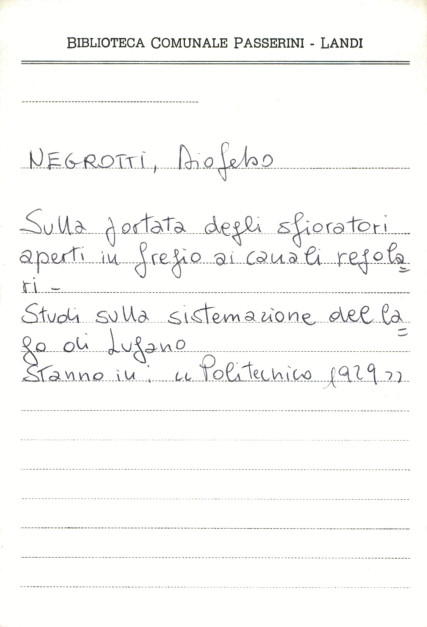 BIBLIOTECA COMUNALE PASSERINI - LANDI
NEGROTTI, Diofebo
Sulla portata degli sfioratori
aperti in fregio ai canali regola=
ri -
Studi sulla sistemazione del la=
go di Lugano
Stanno in: "Politecnico 1929"